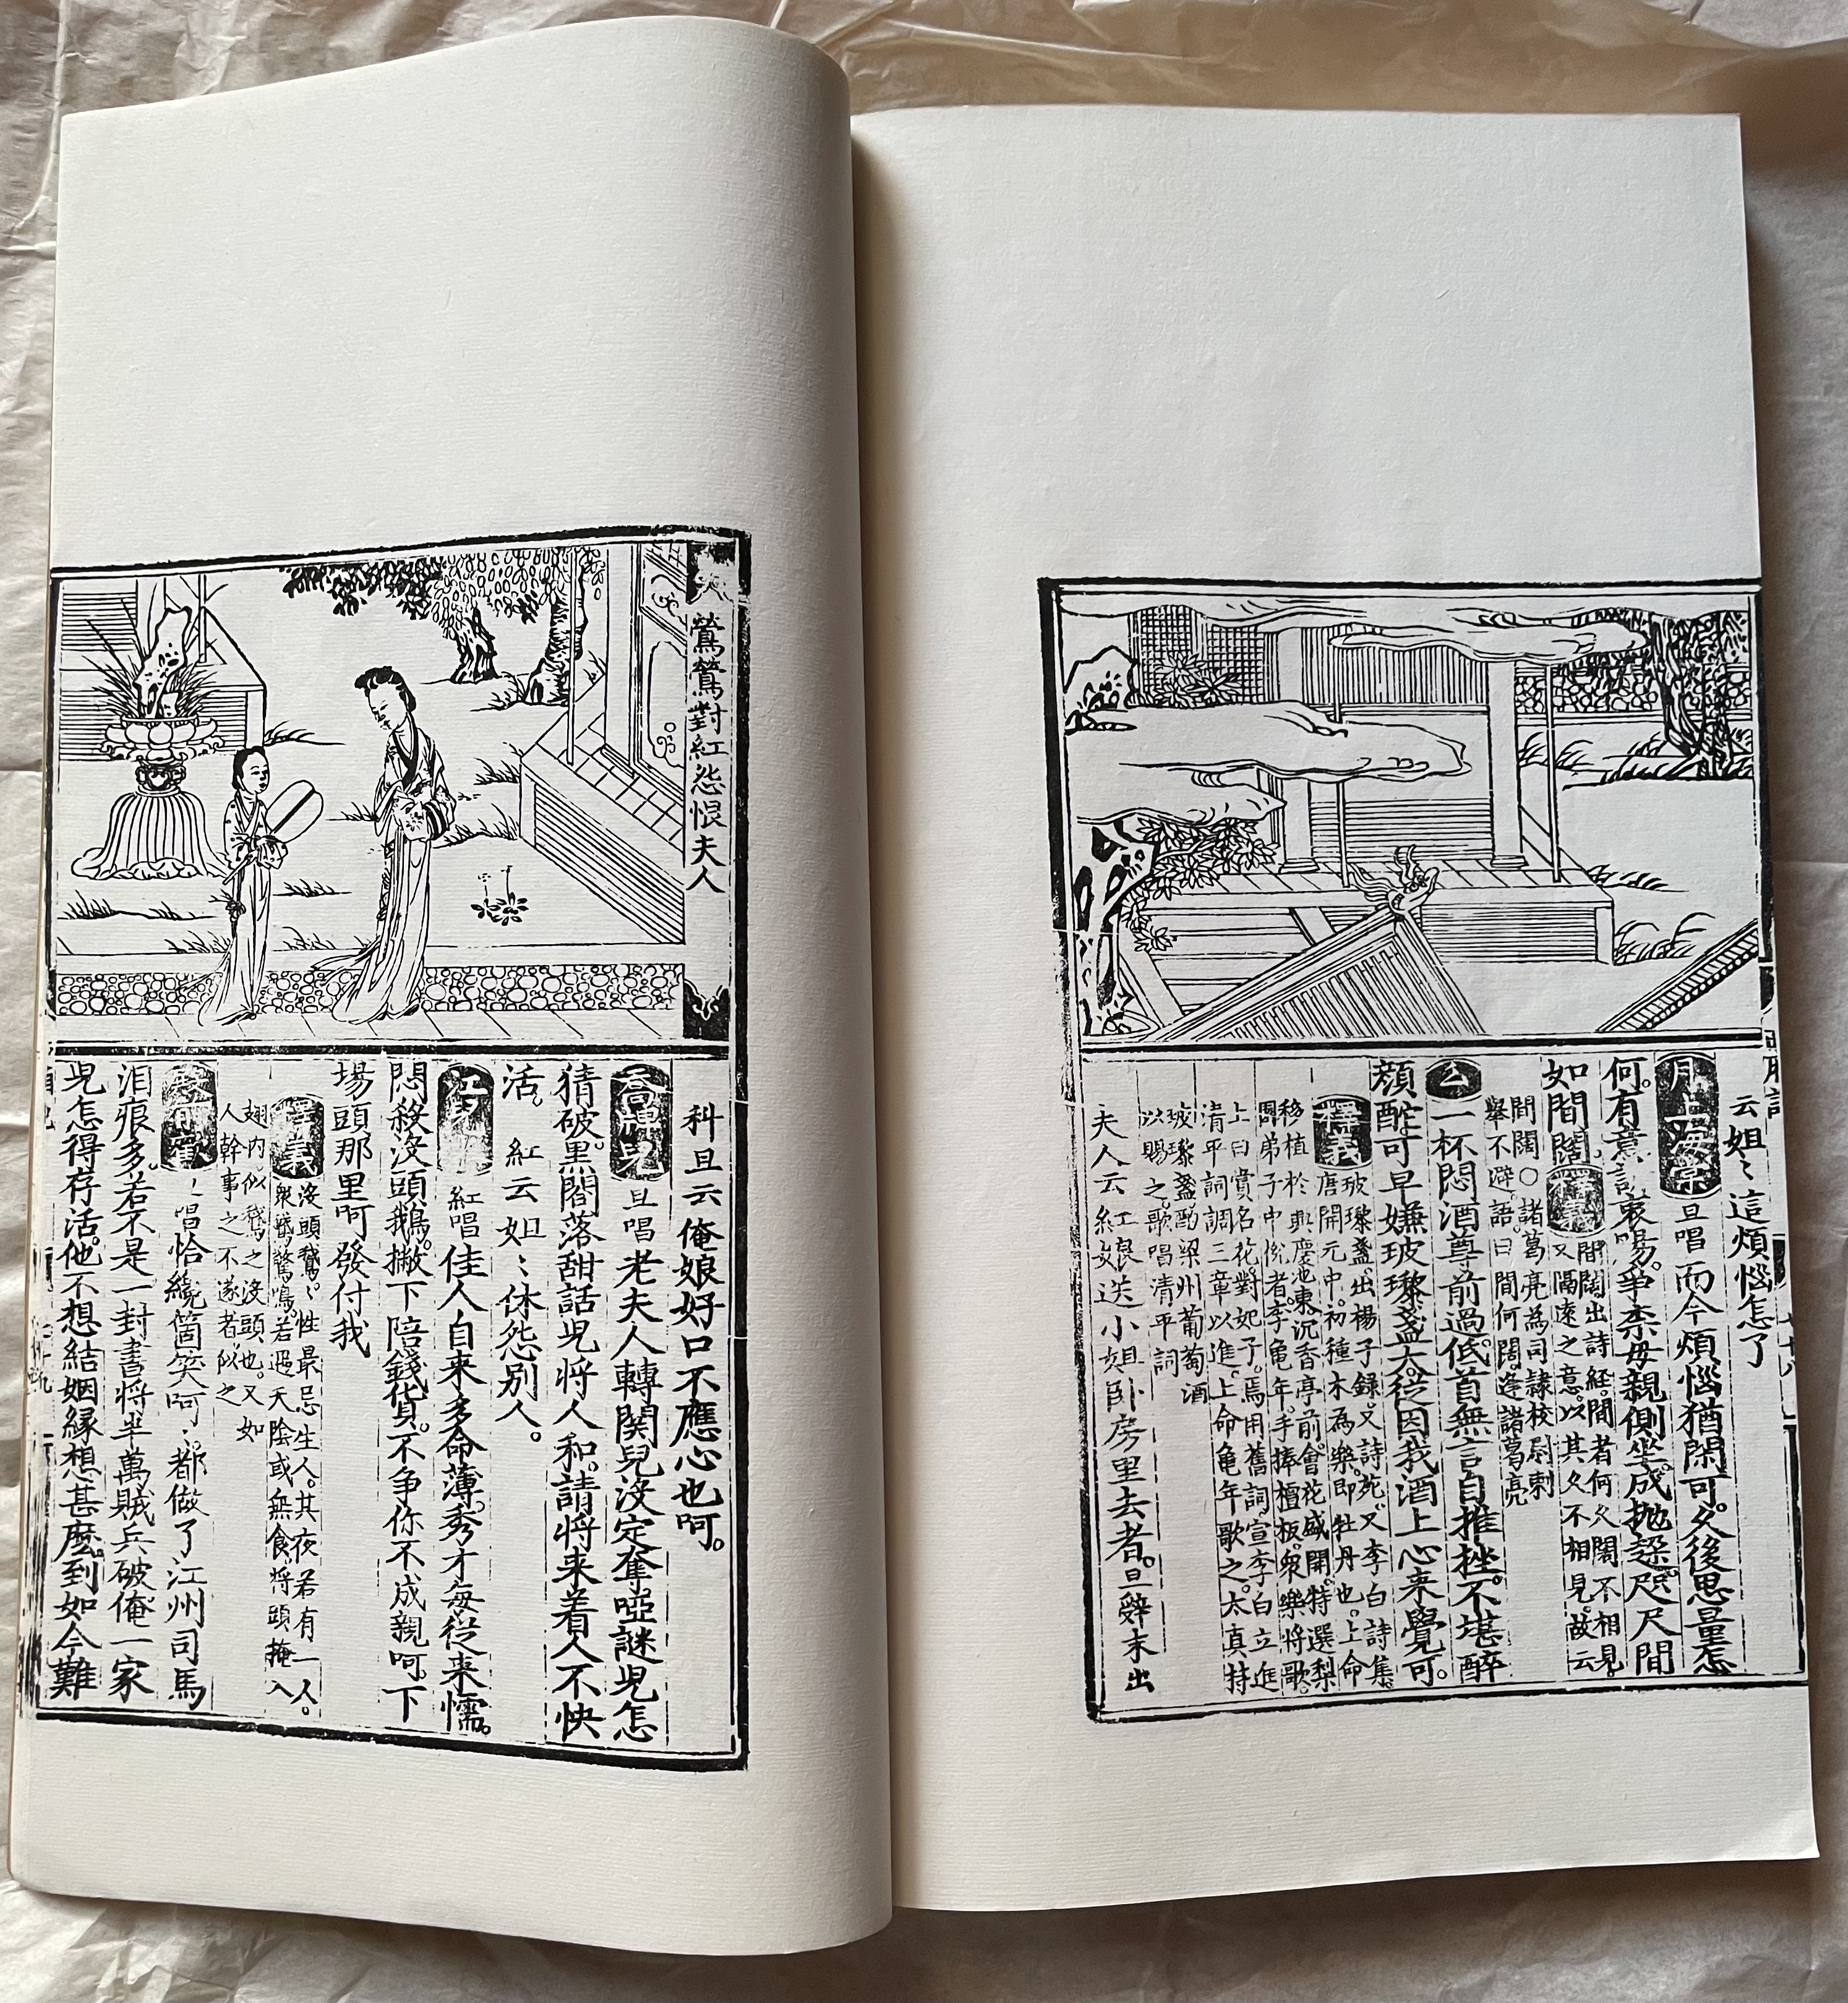 云姐〻這煩惱怎了
月上海棠 旦唱而今煩惱猶閑可。久後思量怎
何。有意訴衷腸。爭柰毋親側坐。成抛趓。咫尺間
如間闊 釋義 間闊。出詩經。間者何久闊不相見。
又隔遠之意。以其久不相見。故云
間闊○諸葛亮為司隷校尉。刺
舉不避。語曰間何闊。逢諸葛亮
么 一杯悶酒尊前過。低首無言自推挫。不堪醉
顔酡。可早嫌玻瓈盞大。從因我酒上心来覺可。
釋義 玻瓈盞。出楊子録。又詩苑。又李白詩集。
唐開元中。初種木為樂。即牡丹也。上命
移植於興慶池東。沉香亭前。會花盛開。特選梨
園弟子中。 者李亀年。手捧檀板。衆樂將歌。
上曰賞名花。對妃子。焉用舊詞。宣李白立進
清平詞調三章以進。上命亀年歌之。太真持
玻瓈盞。酌梁州葡萄酒
以賜之。歌唱清平詞
夫人云紅娘送小姐卧房里去者。旦辭末出
鶯鶯對紅怨恨夫人
科旦云俺娘好口不應心也呵。
喬牌兒 旦唱老夫人轉関兒没定奪。啞謎児怎
猜破。黒閣落甜話児将人和。請将来着人不快
活。 紅云姐〻休怨别人。
江兒水 紅唱佳人自来多命薄。秀才每從来懦。
悶殺没頭鵝。撇下陪錢貨。不争你不成親呵。下
場頭那里呵發付我
釋義 没頭鵞。〻性最忌生人。其夜若有一人。
衆鵞驚鳴。若遇天陰或無食。將頭掩入
翅内。似鵞之没頭也。又如
人幹事之不遂者。似之
殿前歡 旦唱恰纔箇笑呵〻。都做了江州司馬
泪痕多。若不是一封書将半萬賊兵破。俺一家
児怎得存活。他不想結姻縁想甚麽。到如今難